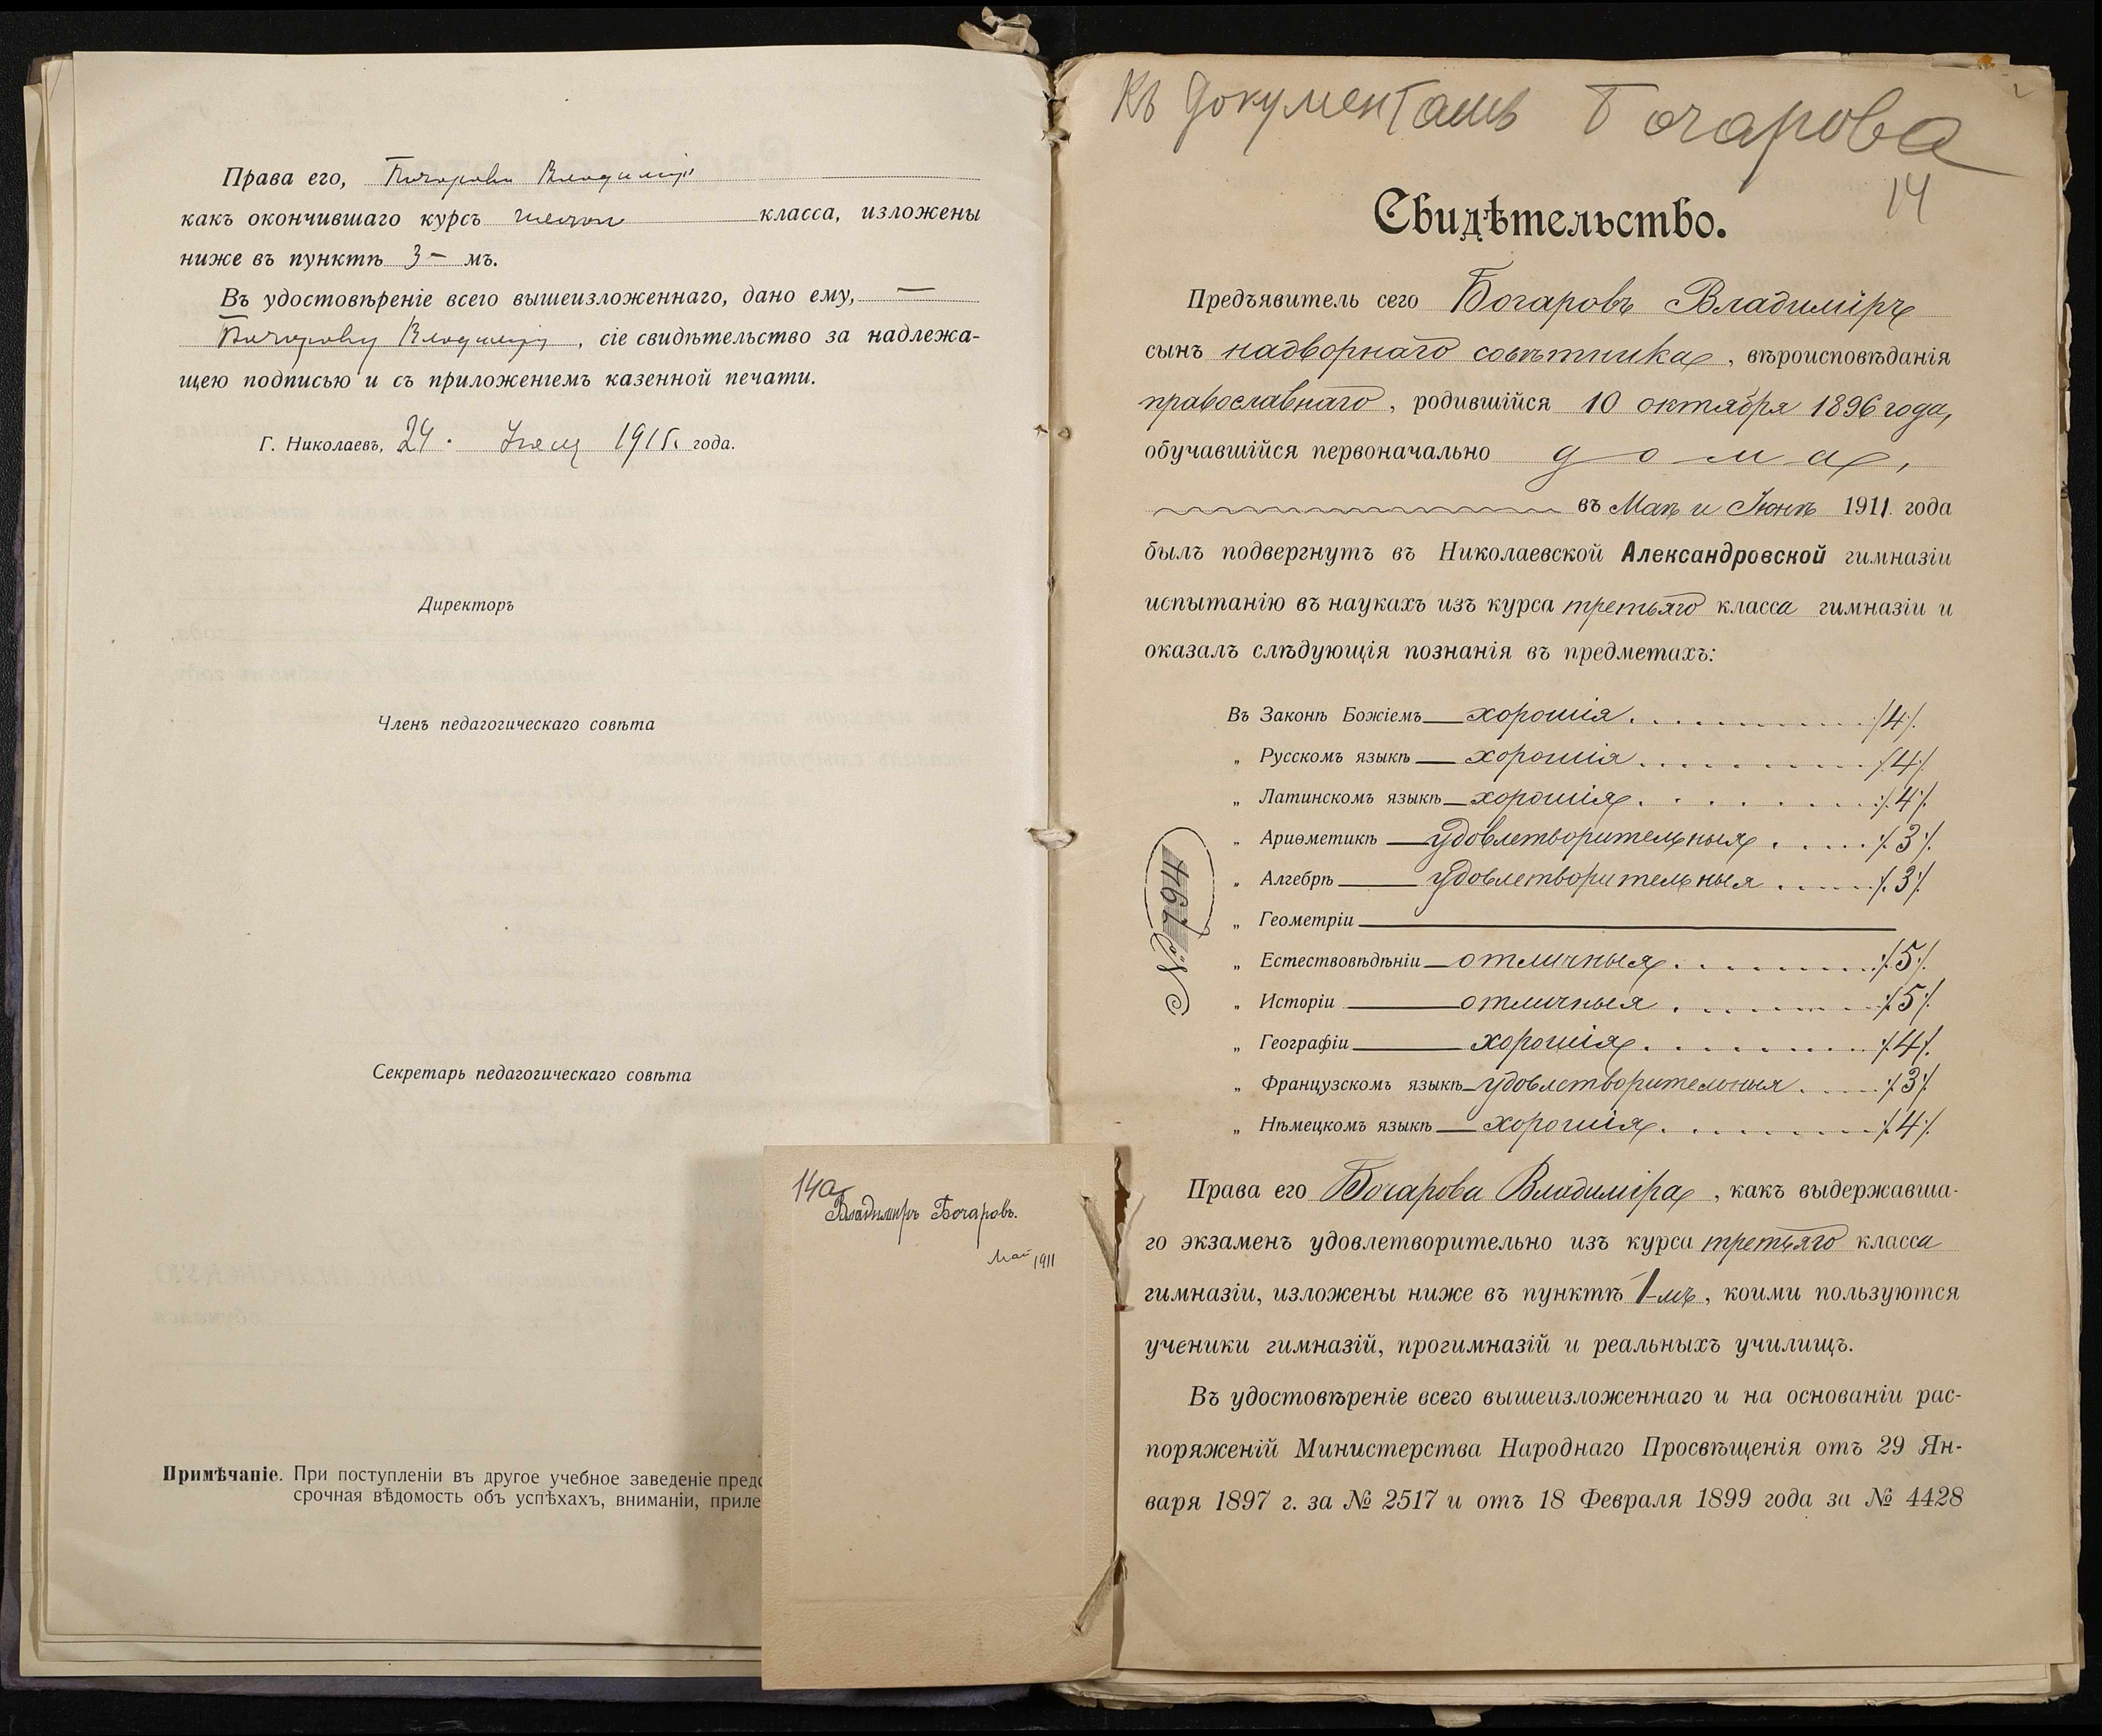 Права его, Бочарова Владимира
какъ окончившаго курсъ шести класса, изложены
ниже въ пунктѣ 3 – мъ.
Въ удостовѣреніе всего вышеизложеннаго, дано ему, —
Бочарову Владиміру, сіе свидѣтельство за надлежа-
щею подписью и съ приложеніемъ казенной печати.
Г. Николаевъ, 24. 1915. года.
Директоръ
Членъ педагогическаго совѣта
Секретарь педагогическаго совѣта
Примѣчаніе. При поступленіи въ другое учебное заведеніе
срочная вѣдомость объ успѣхахъ, вниманіи,
14а
Владимиръ Бочаровъ.
Май 1911
Къ документамъ Бочарова
14
Свидѣтельство.
Предъявитель сего Бочаровъ Владиміръ
сынъ надворнаго совѣтника, вѣроисповѣданія
православнаго, родившійся 10 октября 1896 года,
обучавшійся первоначально дома,
въ Маѣ и Іюнѣ 1911. года
былъ подвергнутъ въ Николаевской Александровской гимназіи
испытанію въ наукахъ изъ курса третьяго класса гимназіи и
оказалъ слѣдующія познанія въ предметахъ:
Въ Законѣ Божіемъ — хорошія . . . . . ./4/.
„ Русскомъ языкѣ — хорошія . . . . . ./4/.
„ Латинскомъ языкѣ — хорошія . . . . . ./4/.
„ Ариѳметикѣ — удовлетворительныя . . . . ./3/.
„ Алгебрѣ — удовлетворительныя . . . . ./3/.
„ Геометріи —
„ Естествовѣдѣніи — отличныя . . . . . ./5/.
„ Исторіи — отличныя . . . . . ./5/.
„ Географіи — хорошія . . . . . ./4/.
„ Французскомъ языкѣ — удовлетворительныя . . . ./3/.
„ Нѣмецкомъ языкѣ — хорошія . . . . . ./4/.
№ 794
Права его Бочарова Владиміра, какъ выдержавша-
го экзаменъ удовлетворительно изъ курса третьяго класса
гимназіи, изложены ниже въ пунктѣ 1-мъ, коими пользуются
ученики гимназій, прогимназій и реальныхъ училищъ.
Въ удостовѣреніе всего вышеизложеннаго и на основаніи рас-
поряженій Министерства Народнаго Просвѣщенія отъ 29 Ян-
варя 1897 г. за № 2517 и отъ 18 Февраля 1899 года за № 4428